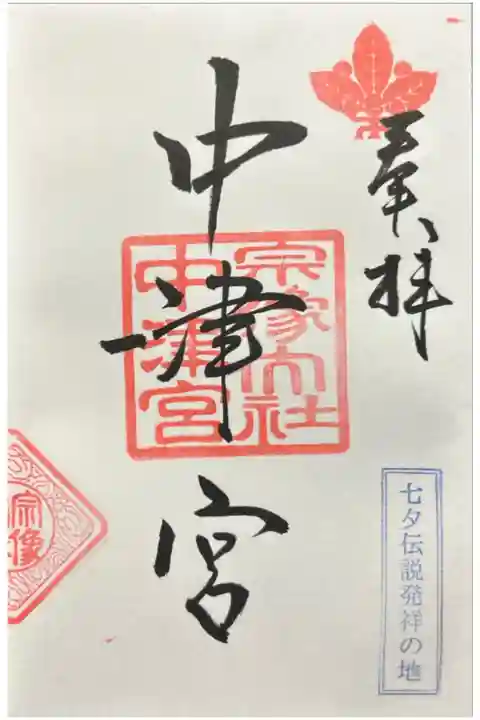 奉拝
中津宮
宗像大社
中津宮
七夕伝説発祥の地
宗像